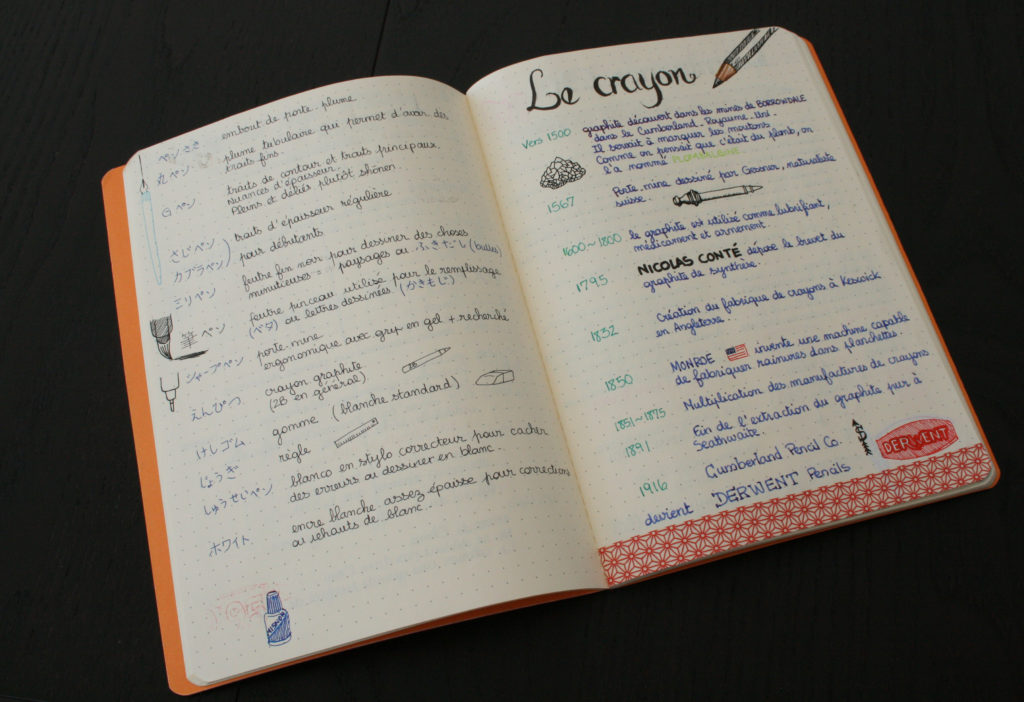 ペンさき embout de porte-plume
丸ペン plume tubulaire qui permet d'avoir des
traits fins.
Gペン traits de contour et traits principaux.
Nuances d'épaisseur.
Pleins et déliés plutôt shônen.
さじペン traits d'épaisseur régulière
カブラペン pour débutants
ミリペン feutre fin noir pour dessiner des choses
minutieuses = paysages ou ふきだし (bulles)
筆ペン feutre pinceau utilisé pour le remplissage
(ベタ) ou lettres dessinées (かきもじ)
シャープペン porte-mine
ergonomique avec grip en gel + recherché
えんぴつ crayon graphite
(2B en général)
けしゴム gomme (blanche standard)
じょうぎ règle
しゅうせいペン blanco en stylo correcteur pour cacher
des erreurs ou dessiner en blanc.
ホワイト encre blanche assez épaisse pour corrections
ou rehauts de blanc.
Le crayon
vers 1500 graphite découvert dans les mines de BORROWDALE
dans le Cumberland. Royaume-Uni
Il servait à marquer les moutons
Comme on pensait que c'était du plomb, on
l'a nommé PLOMBAGINE.
1567 Porte-mine dessiné par Gessner, naturaliste
suisse.
1600~1800 le graphite est utilisé comme lubrifiant,
médicament et armement.
1795 NICOLAS CONTÉ dépose le brevet du
graphite de synthèse.
1832 Création du fabrique de crayons à Keswick
en Angleterre.
1850 MONROE invente une machine capable
de fabriquer rainures dans planchettes.
1851~1875 Multiplication des manufactures de crayons
1891 Fin de l'extraction du graphite pur à
Seathwaite.
1916 Cumberland Pencil Co.
devient DERWENT Pencils
DERWENT